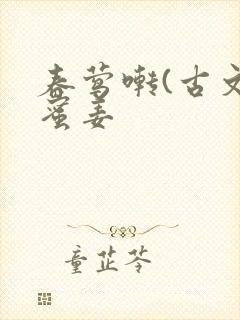 春莺啭(古文
蛮妻
童芷苓